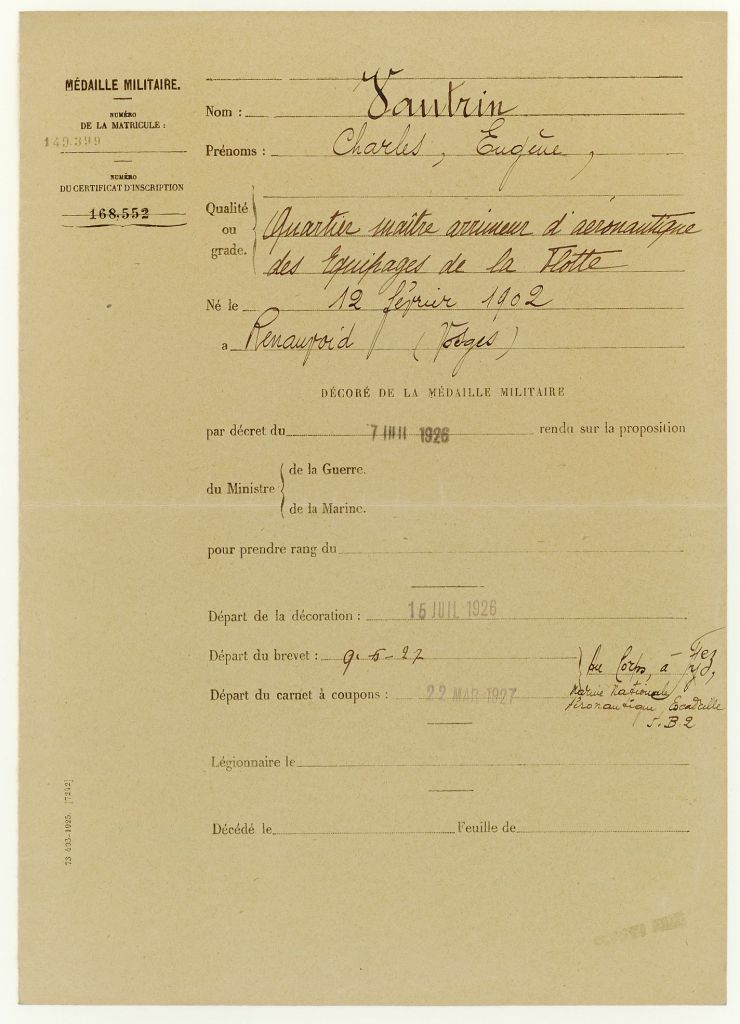 MÉDAILLE MILITAIRE.
NUMÉRO
DE LA MATRICULE :
149.399
NUMÉRO
DU CERTIFICAT D'INSCRIPTION
168.552
Nom : Vautrin
Prénoms : Charles, Eugène,
Qualité ou grade. Quartier maître arrimeur d'aéronautique
des Equipages de la Flotte
Né le 12 février 1902
a Renauvoid (Vosges)
DÉCORÉ DE LA MÉDAILLE MILITAIRE
par décret du 7 JUIL 1926 rendu sur la proposition
du Ministre
de la Guerre.
de la Marine.
pour prendre rang du
Départ de la décoration : 15 JUIL 1926
Départ du brevet : 9-5-27
au Corps, à Fez
Départ du carnet à coupons : 22 MAR 1927
Marine Nationale
Aéronautique, Escadrille
5.B.2
Légionnaire le
Décédé le Feuille de
73 403-1925. [7242]